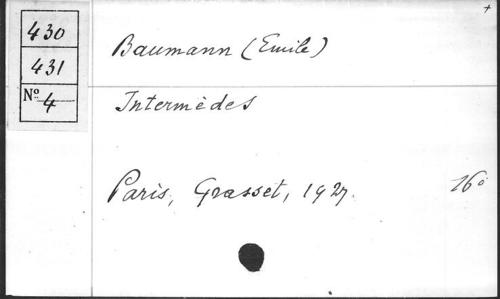 430
431
Nº 4
+
Baumann (Emile)
Intermèdes
Paris, Grasset, 1927.
16º